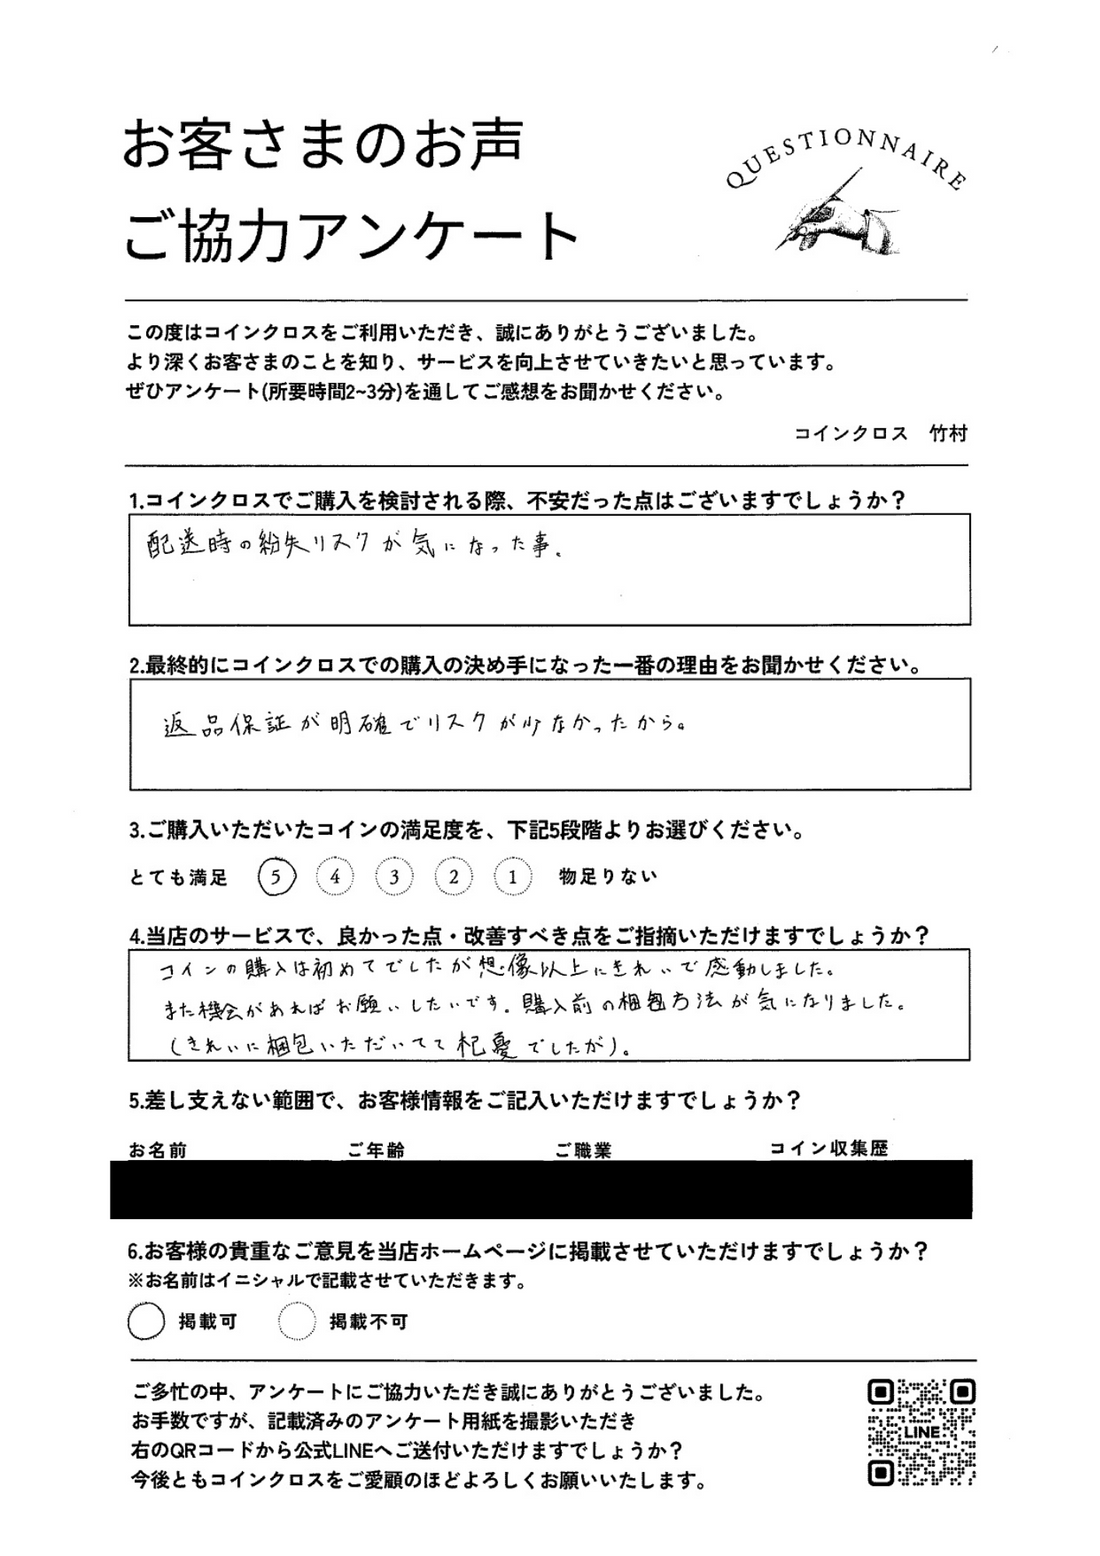 お客さまのお声
ご協力アンケート
QUESTIONNAIRE
この度はコインクロスをご利用いただき、誠にありがとうございました。
より深くお客さまのことを知り、サービスを向上させていきたいと思っています。
ぜひアンケート(所要時間2~3分)を通してご感想をお聞かせください。
コインクロス　竹村
1.コインクロスでご購入を検討される際、不安だった点はございますでしょうか？
配送時の紛失リスクが気になった事。
2.最終的にコインクロスでの購入の決め手になった一番の理由をお聞かせください。
返品保証が明確でリスクが少なかったから。
3.ご購入いただいたコインの満足度を、下記5段階よりお選びください。
とても満足 5 4 3 2 1 物足りない
4.当店のサービスで、良かった点・改善すべき点をご指摘いただけますでしょうか？
コインの購入は初めてでしたが想像以上にきれいで感動しました。
また機会があればお願いしたいです。購入前の梱包方法が気になりました。
(きれいに梱包いただいてて杞憂でしたが)。
5.差し支えない範囲で、お客様情報をご記入いただけますでしょうか？
お名前 ご年齢 ご職業 コイン収集歴
6.お客様の貴重なご意見を当店ホームページに掲載させていただけますでしょうか？
※お名前はイニシャルで記載させていただきます。
掲載可 掲載不可
ご多忙の中、アンケートにご協力いただき誠にありがとうございました。
お手数ですが、記載済みのアンケート用紙を撮影いただき
右のQRコードから公式LINEへご送付いただけますでしょうか？
今後ともコインクロスをご愛顧のほどよろしくお願いいたします。
LINE